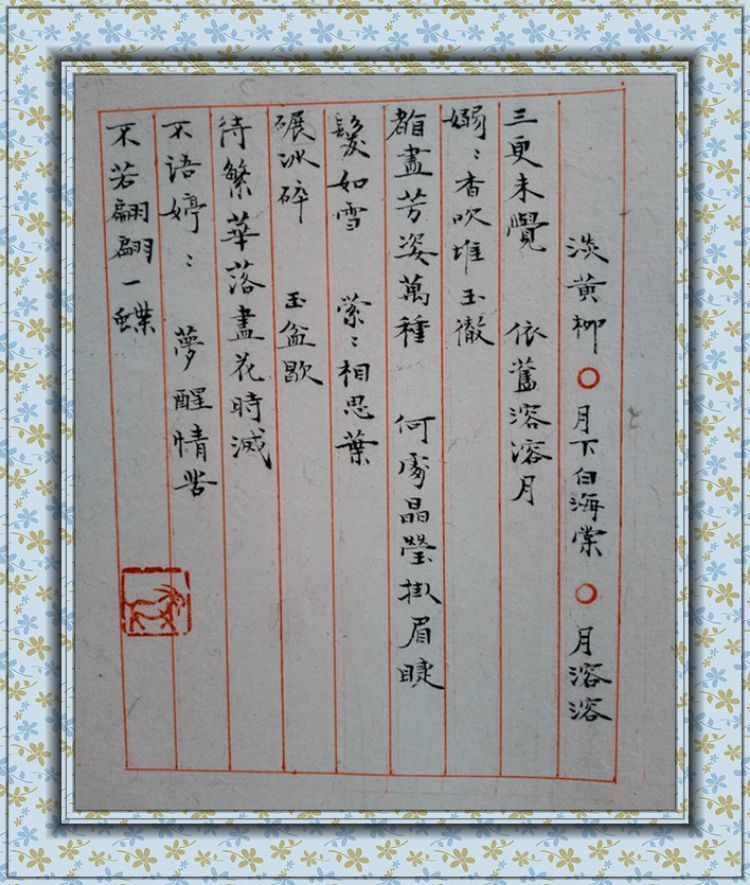 淡黄柳○月下白海棠○月溶溶
三更未覺 依舊溶溶月
嫋〻香吹堆玉徹
盡芳姿萬種 何處晶瑩掛眉睫
髮如雪 萦〻相思葉
碾冰碎 玉盆歇
待繁華落盡花時滅
不語婷〻 夢醒情苦
不若翩翩一蝶